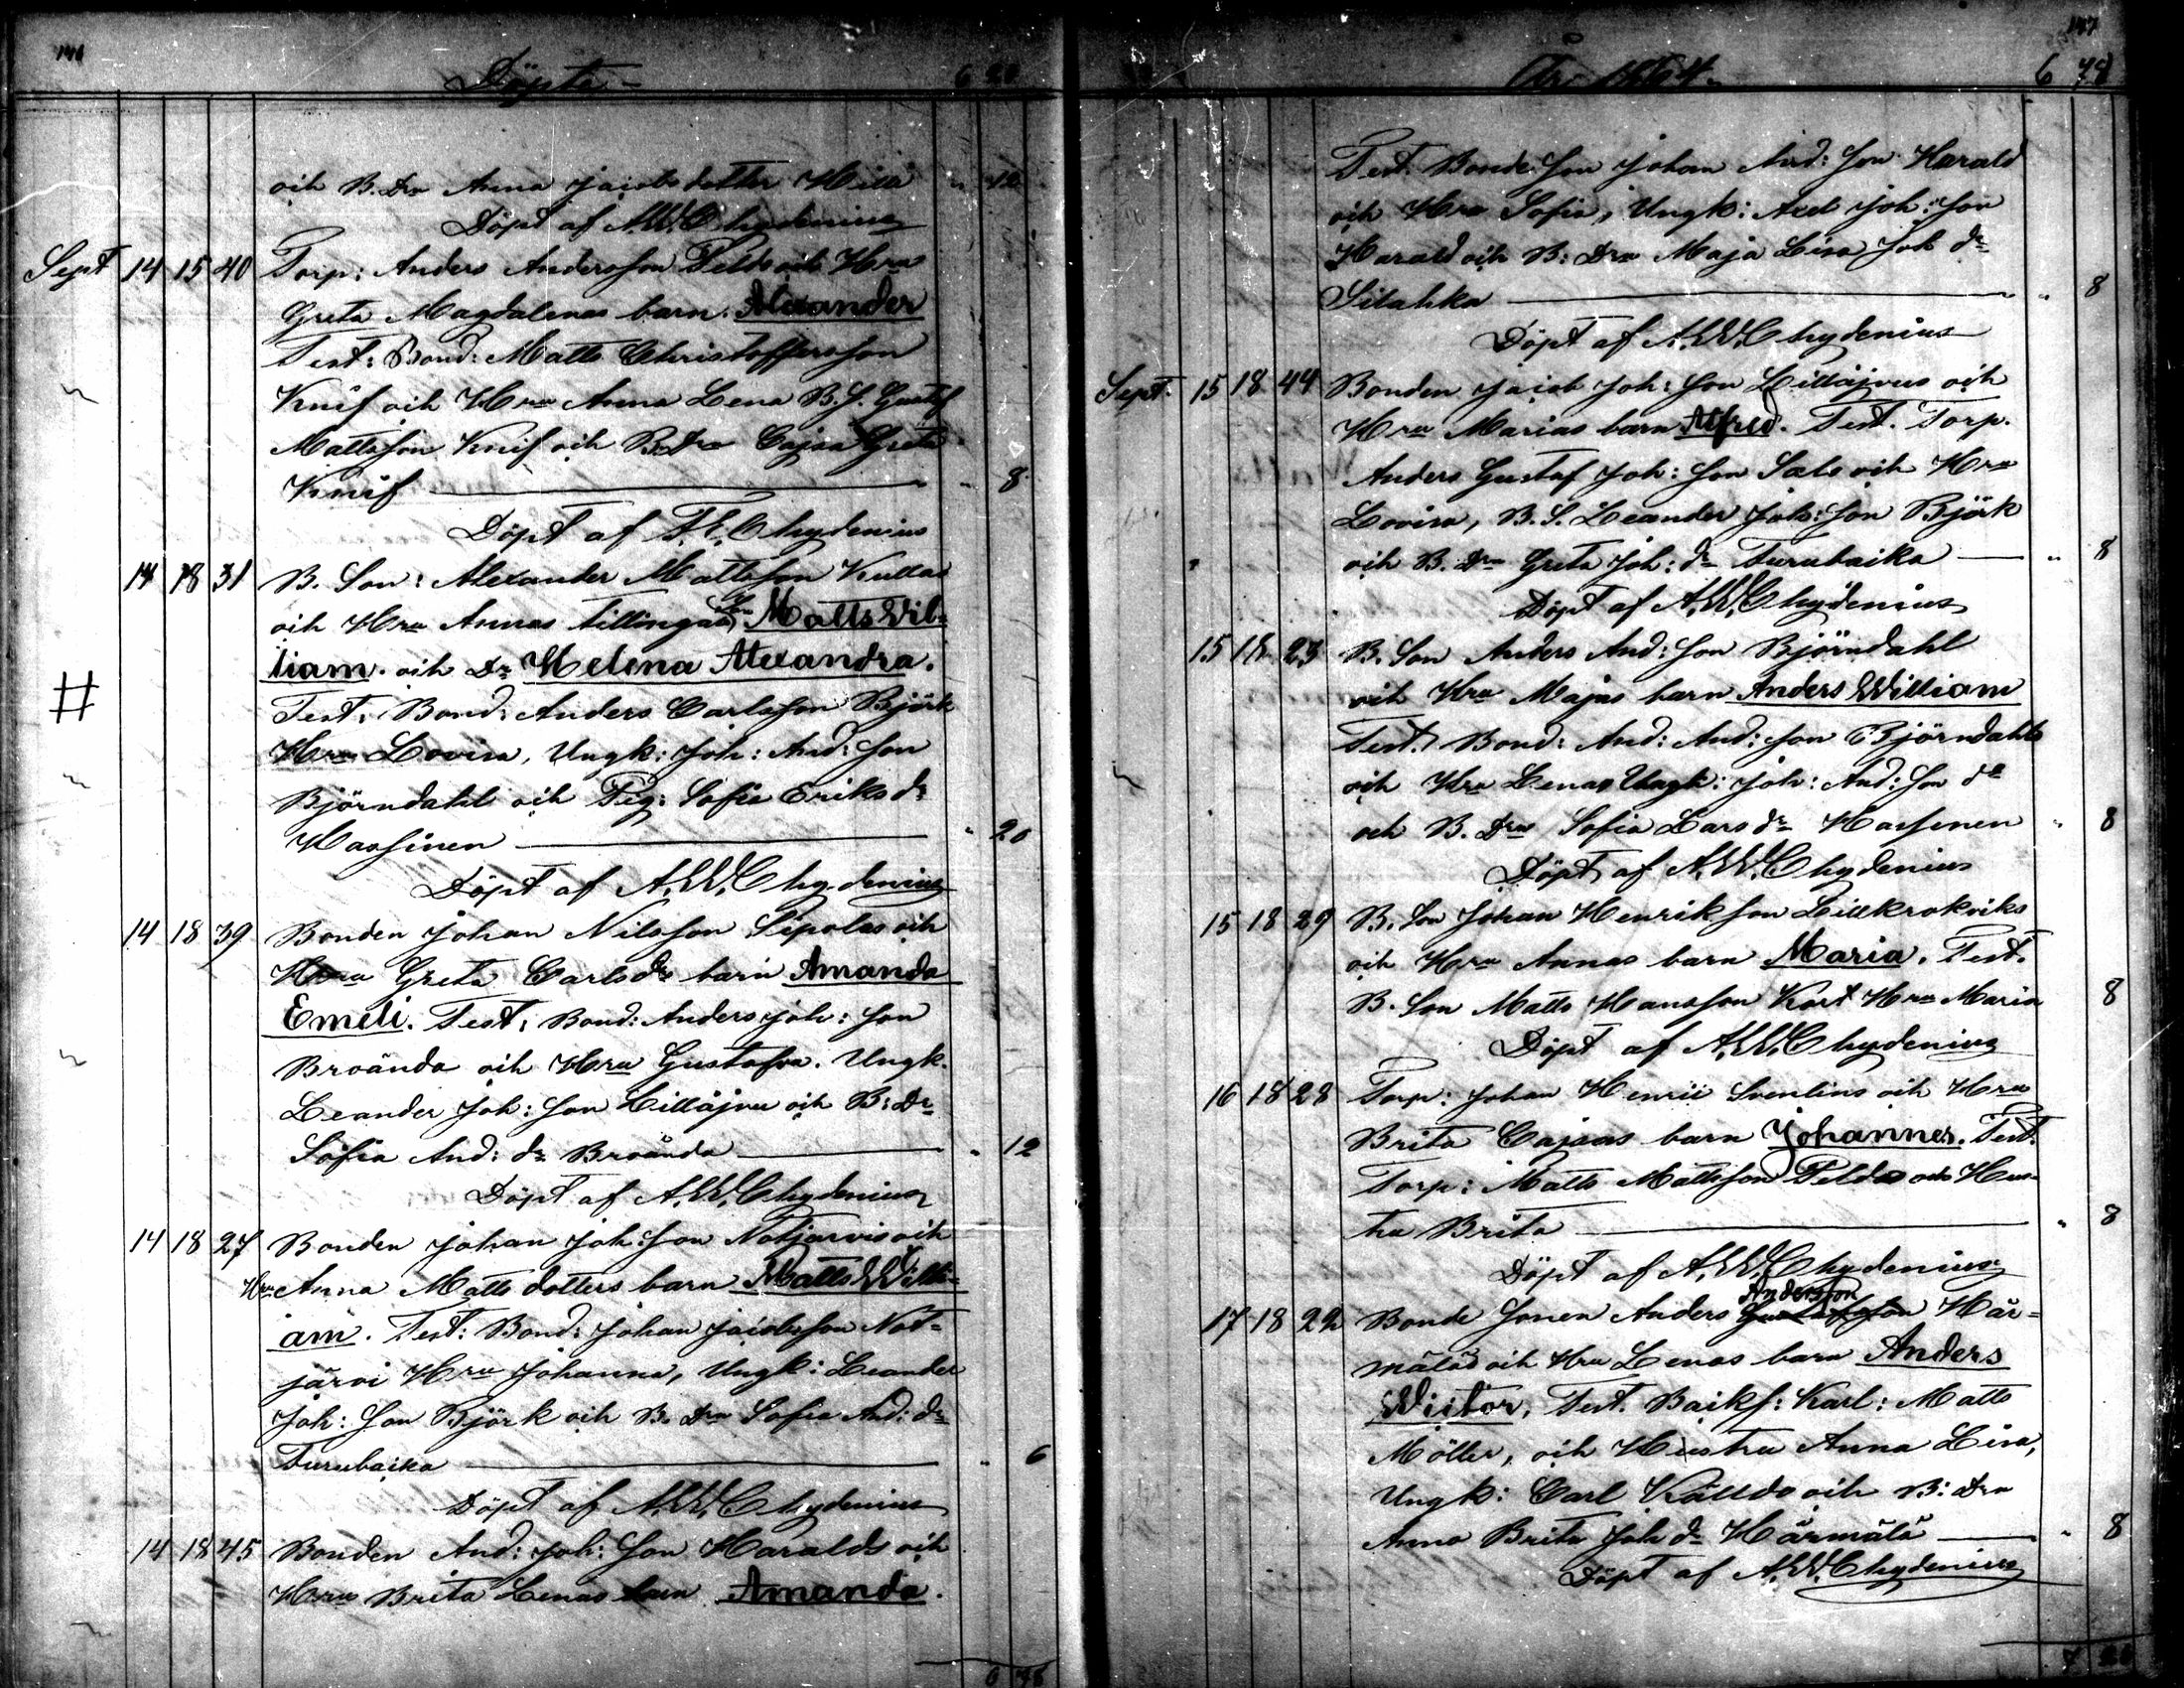 146
Döpte –
6 20
och B. Dra Anna Jacobsdotter Hilli " 12
Döpt af A.W. Chydenius
Sept 14 15 40 Torp: Anders Andersson Felds och Hrus
Greta Magdalenas barn. Alexander
Test: Bond: Matts Christoffersson
Knif och Hru Anna Lena B.S. Gustaf
Mattsson Knif och B. Dra Cajsa Greta
Knif — " 8
Döpt af Chydenius
14 18 31 B. Son: Alexander Mattsson Kullas
och Hru Annas tillingar, Son Matts Wil-
liam. och Dr Helena Alexandra.
Test: Bond: Anders Carlsson Björk
Hru Lovisa, Ungk: Joh: And: Son
Björndahl och Pig: Sofia Eriks dr
Hassinen — " 20
Döpt af A.W. Chydenius
14 18 39 Bonden Johan Nilsson Sipolas och
Hru Greta Carls drs barn Amanda
Emeli. Test: Bond: Anders Joh: Son
Broända och Hru Gustafva. Ungk.
Leander Joh: Son Lillåjvu och B: Dr
Sofia And: dr Broända — " 12
Döpt af A.W. Chydenius
14 18 27 Bonden Johan Joh: Son Notjarvis och
Hru Anna Matts dotters barn Matts Willi-
am. Test: Bond: Johan Jacobsson Not-
järvi Hru Johanna, Ungk: Leander
Joh: Son Björk och B. Dra Sofia And: dr
Furubacka — " 6
Döpt af A.W. Chydenius
14 18 45 Bonden And: Joh: Son Haralds och
Hru Brita Lenas barn Amanda.
6 78
147
År 1864.
6 78
Test. Bonde Son Johan And: Son Harald
och Hru Sofia, Ungk: Axel Joh: Son
Harald och B: Dra Maja Lisa Joh dr
Silahka — " 8
Döpt af A.W. Chydenius
Sept. 15 18 44 Bonden Jacob Joh: Son Lillåjvus och
Hru Marias barn Alfred. Test. Torp.
Anders Gustaf Joh: Son Sals och Hru
Lovisa, B.S. Leander Joh: Son Björk
och B. Dra Greta Joh: dr Furubacka — " 8
Döpt af A.W. Chydenius
15 18 23 B. Son Anders And: Son Björndahl
och Hru Majas barn Anders William
Test. Bond: And: And: Son Björndahl
och Hru Lena, Ungk: Joh: And: Son do
och B. Dra Sofia Lars dr Hassinen " 8
Döpt af A.W. Chydenius
15 18 29 B. Son Johan Henrikson Lillkrokviks
och Hru Annas barn Maria. Test.
B. Son Matts Hansson Hru Maria 8
Döpt af A.W. Chydenius
16 18 28 Torp: Johan Henric Svenlins och Hru
Brita Cajsas barn Johannes. Test.
Torp: Matts Mattsson Felds och Hus-
tru Brita — " 8
Döpt af A.W. Chydenius
17 18 22 Bonde Sonen Anders Andersson Här-
mäläs och Hru Lenas barn Anders
Wictor, Test. Backs: Karl: Matts
Möller, och Hustru Anna Lisa,
Ungk: Carl Källdo och B: Dra
Anna Brita Joh dr Härmälä — " 8
Döpt af A.W. Chydenius